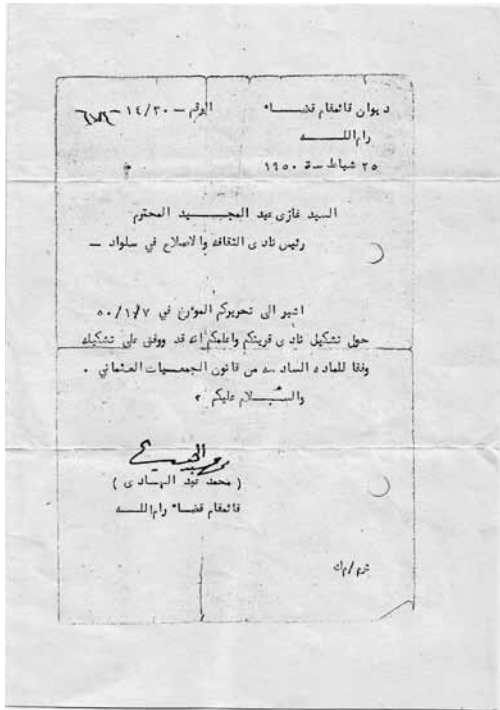 ديوان قائمقام قضــــاء الرقم – ١٤/٣٠ –
رام اللــــه
٢٥ شباط سنة ١٩٥٠
السيد غازى عبد المجـــيد المحترم
رئيس نادى الثقافه والاصلاح في سلواد –
اشير الى تحريركم المؤرخ في ٥٠/١/٧
حول تشكيل نادى قريتكم واعلمكم انه قد ووفق على تشكيله
وفقا للماده السادسه من قانون الجمعيات العثماني .
والســـلام عليكم ،
( محمد عبد الهادى )
قائمقام قضــاء رام اللــــه